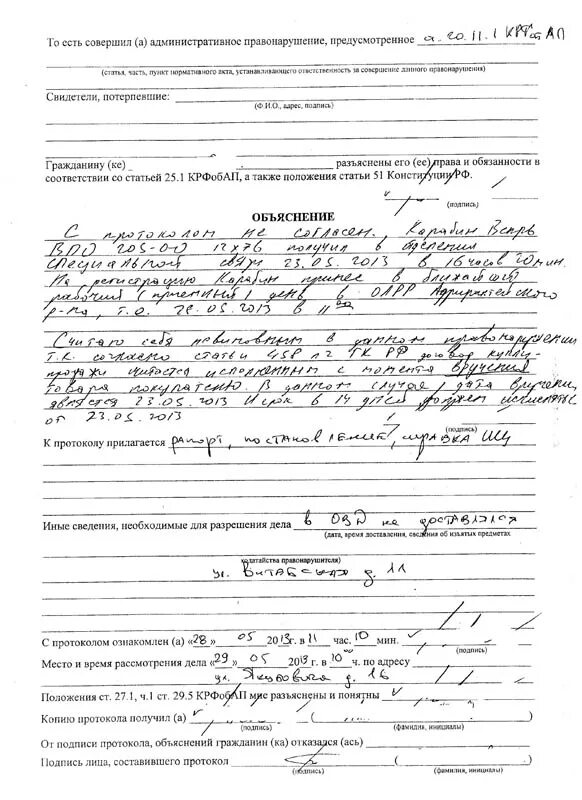 То есть совершил (а) административное правонарушение, предусмотренное а. 20.11.1 КРФобАП
(статья, часть, пункт нормативного акта, устанавливающего ответственность за совершение данного правонарушения)
Свидетели, потерпевшие:
(Ф.И.О., адрес, подпись)
Гражданину (ке) разъяснены его (ее) права и обязанности в
соответствии со статьей 25.1 КРФобАП, а также положения статьи 51 Конституции РФ.
(подпись)
ОБЪЯСНЕНИЕ
С протоколом не согласен, Карабин Вепрь
ВПО 205-00 12х76 получил в отделении
специальной связи 23.05.2013 в 16 часов 20 мин.
На регистрацию Карабин принес в ближайший
рабочий (приемный) день в ОЛРР Адмиралтейского
р-на, т.е. 28.05.2013 в 11 00
Считаю себя невиновным в данном правонарушении
т.к. согласно статьи 458 п2 ГК РФ договор купли-
продажи читается исполненным с момента вручения
товара покупателю. В данном случае, дата вручения
является 23.05.2013 И срок в 14 дней должен исчисляться
от 23.05.2013
(подпись)
К протоколу прилагается рапорт, постановление, справка ИЦ
Иные сведения, необходимые для разрешения дела в ОВД не доставлялся
(дата, время доставления, сведения об изъятых предметах
ходатайства правонарушителя)
ул. д. 11
С протоколом ознакомлен (а) «28» 05 2013г. в 11 час. 10 мин.
(подпись)
Место и время рассмотрения дела «29» 05 2013 г. в 10 00 ч. по адресу
ул. Якубовича д. 16
Положения ст. 27.1, ч.1 ст. 29.5 КРФобАП мне разъяснены и понятны
(подпись)
Копию протокола получил (а) ( )
(подпись) (фамилия, инициалы)
От подписи протокола, объяснений гражданин (ка) отказался (ась)
Подпись лица, составившего протокол ( )
(подпись) (фамилия, инициалы)